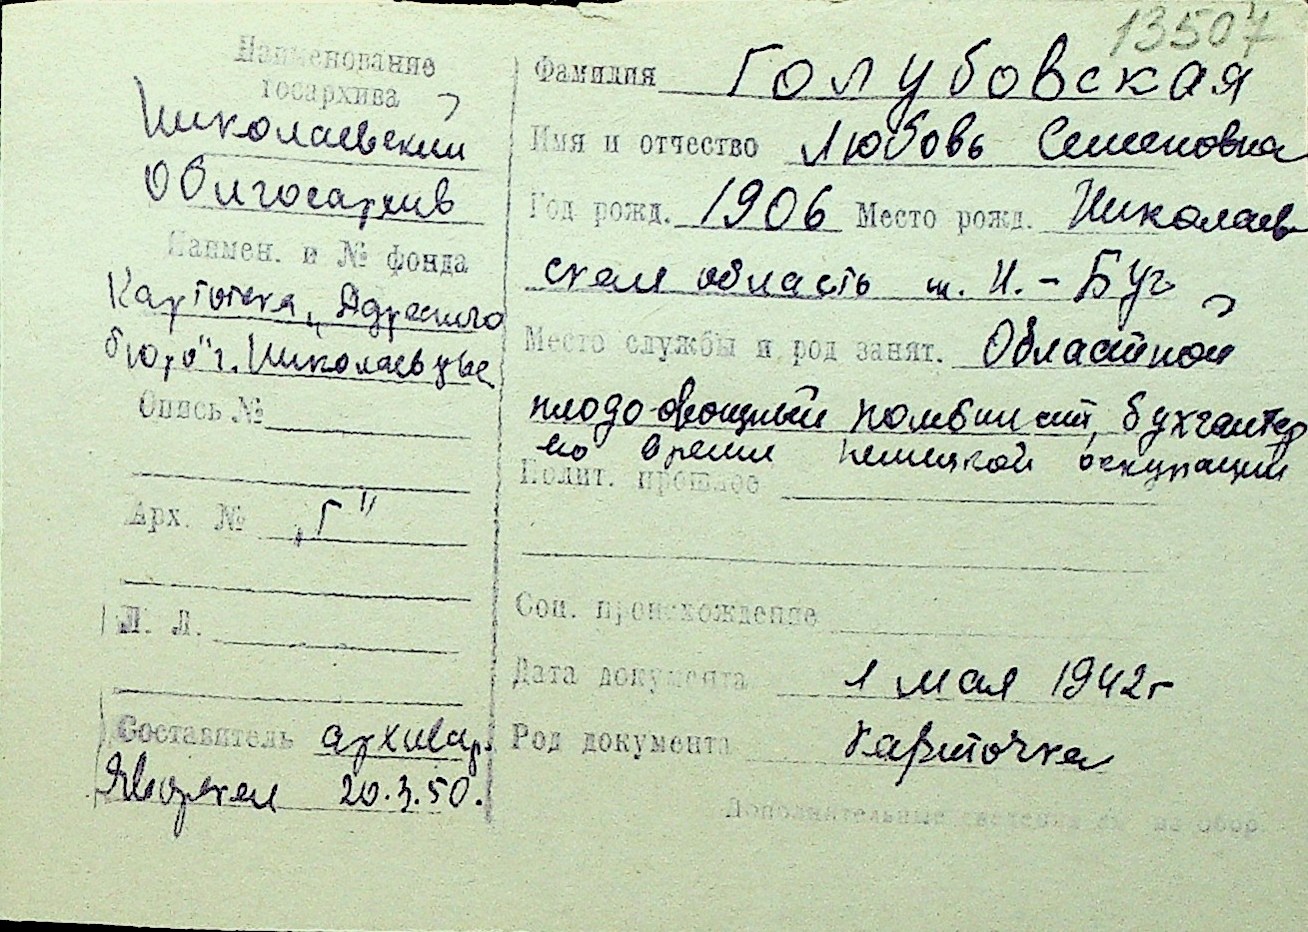 13507
Наименование
госархива
Николаевский
Облгосархив
Наимен. и № фонда
Картотека „Адресного
бюро" г.
Опись №
Арх. № „Г"
Л. Л.
Составитель архивар.
20.3.50.
Фамилия Голубовская
Имя и отчество Любовь Семеновна
Год рожд. 1906 Место рожд. Николаев
ская область м. Н.-Буг
Место службы и род занят. Областной
плодо-овощный комбинат, бухгалтер
во время немецкой оккупации
Полит. прошлое
Соц. происхождение
Дата документа 1 мая 1942г
Род документа карточка
Дополнительные сведения см. на обор.